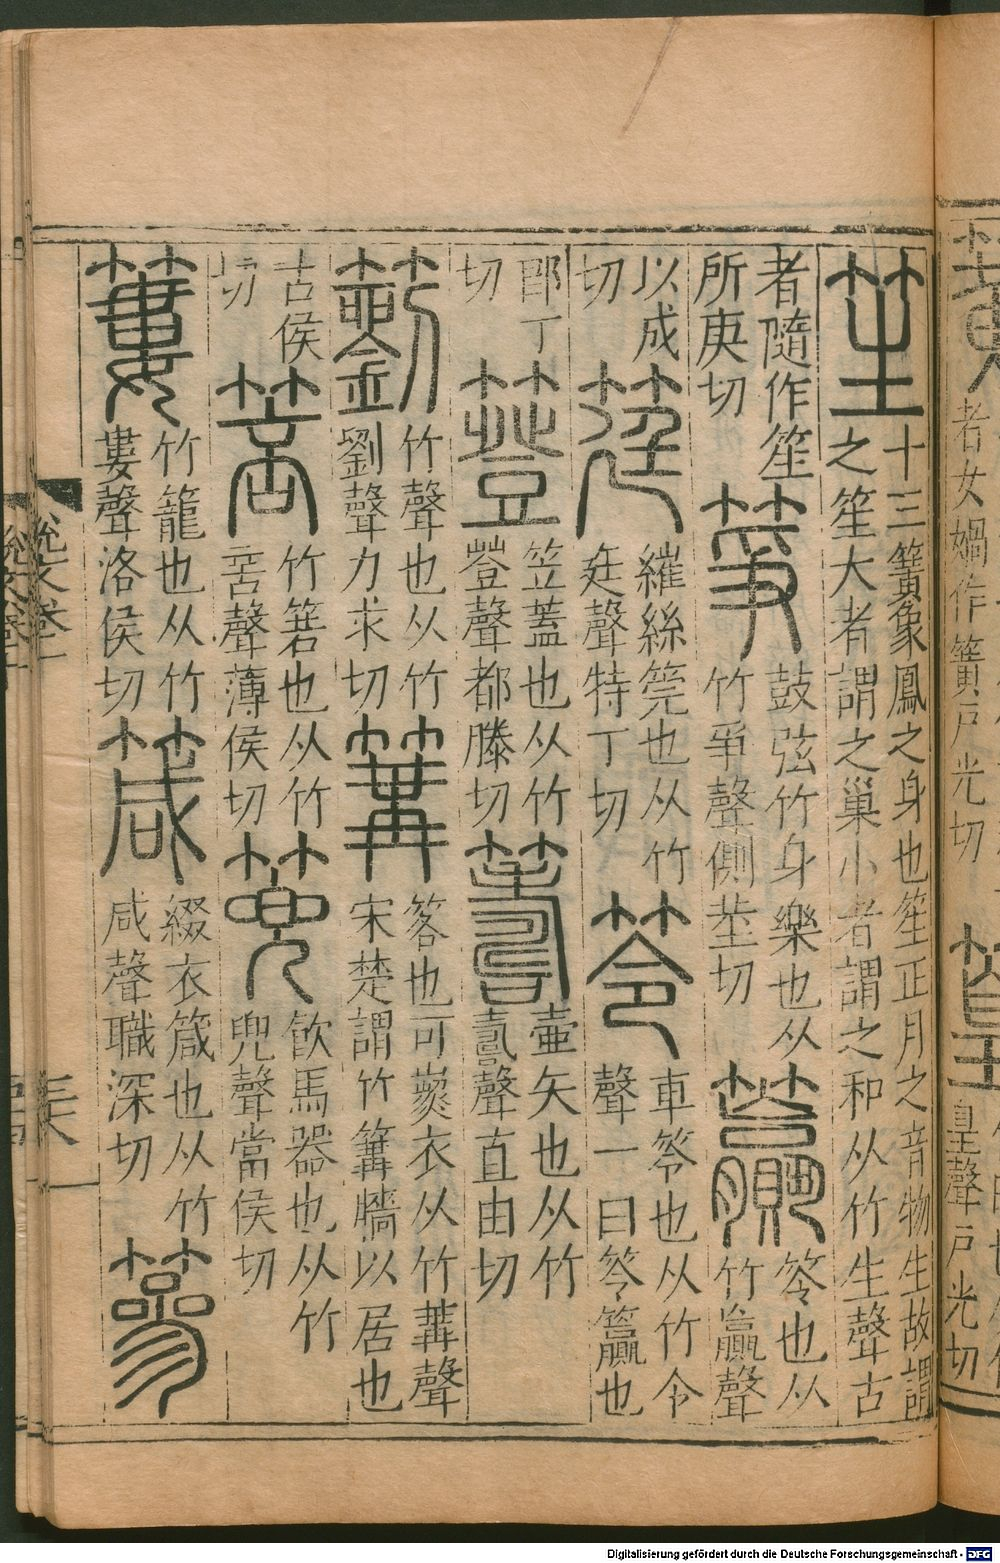 者女媧作簧戶光切
皇聲戶光切
笙
十三簧象鳳之身也笙正月之音物生故謂
之笙大者謂之巢小者謂之和从竹生聲古
者隨作笙
所庚切
箏
鼓弦竹身樂也从
竹爭聲側莖切
籯
笭也从
竹贏聲
以成
切
筳
繀絲筦也从竹
廷聲特丁切
笭
車笭也从竹令
聲一曰笭籯也
郎丁
切
簦
笠蓋也从竹
登聲都滕切
籌
壺矢也从竹
壽聲直由切
籀
竹聲也从竹
劉聲力求切
篝
笿也可熏衣从竹冓聲
宋楚謂竹篝牆以居也
古侯
切
箁
竹箬也从竹
咅聲薄侯切
篼
飲馬器也从竹
兜聲當侯切
簍
竹籠也从竹
婁聲洛侯切
箴
綴衣箴也从竹
咸聲職深切
Digitalisierung gefördert durch die Deutsche Forschungsgemeinschaft - DFG